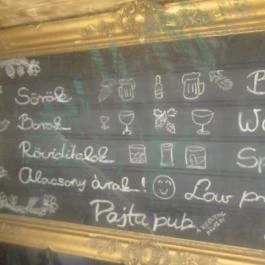 Sörök B
Borok W
Röviditalok Sp
Alacsony árak! Low pr
Pajta pub